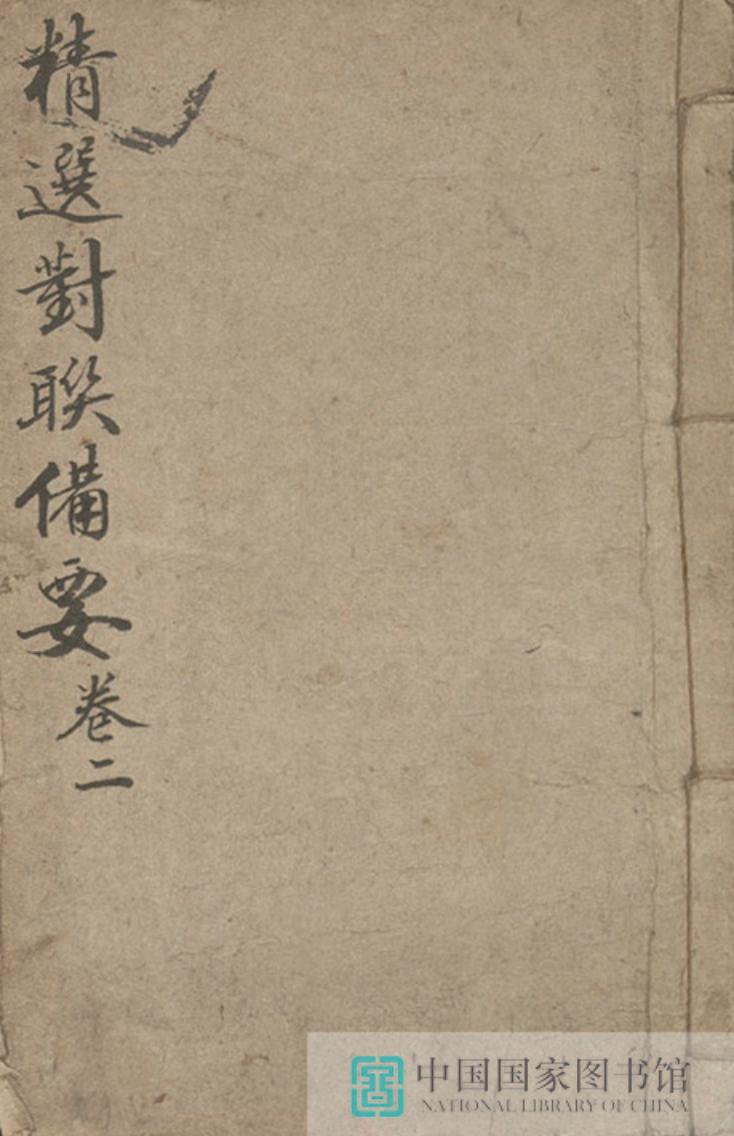 精選對聯備要卷二
中国国家图书馆
NATIONAL LIBRARY OF CHINA